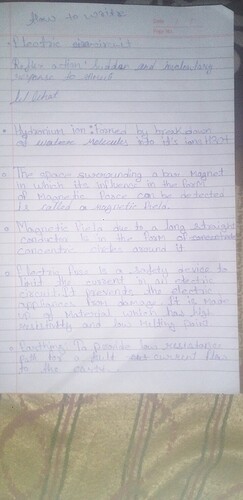 How to write
Electric circuit
Reflex action: Sudden and involuntary
response to stimuli
Hydronium ion: formed by break down
of water molecules into H's ion H3O+
The space surrounding a bar Magnet
in which its influence in the form
of Magnetic force can be detected
is called a magnetic field.
Magnetic field due to a long straight
conductor is in the form of
concentric circles around it
Electric fuse is a safety device to
limit the current in an electric
circuit it prevents the electric
appliances from damage. It is made
up of Material which has high
resistivity and low Milting point
Earthing: To provide low resistance
path for a fault current flow
to the earth